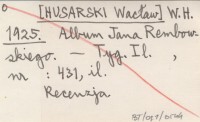 [HUSARSKI Wacław] W.H.
1925. Album Jana Rembow-
skiego. — Tyg. Il. ,
nr : 431, il.
Recenzja